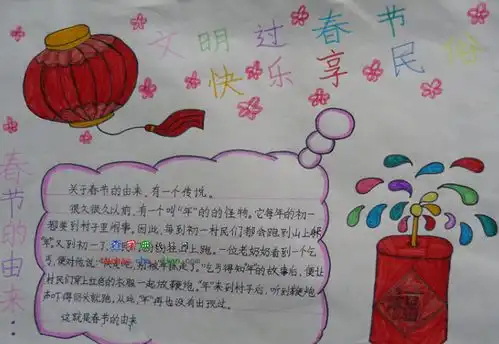 文明过春节
快乐享民俗
春节的由来...
关于春节的由来，有一个传说。
很久很久以前，有一个叫"年"的的怪物。它每年的初一
想要到村子里闹事，因此，每到初一村民们都会跑到山上
又到初一了，狂上跑，一位老奶奶看到一个乞
丐，便对他说：
吃乞丐得知"年"的故事后，便让
村民们穿上红色的衣服一起放鞭炮。"年"来到村子后，听到鞭炮
声吓得回头就跑，从此，"年"再也没有出现过。
这就是春节的由来。
福